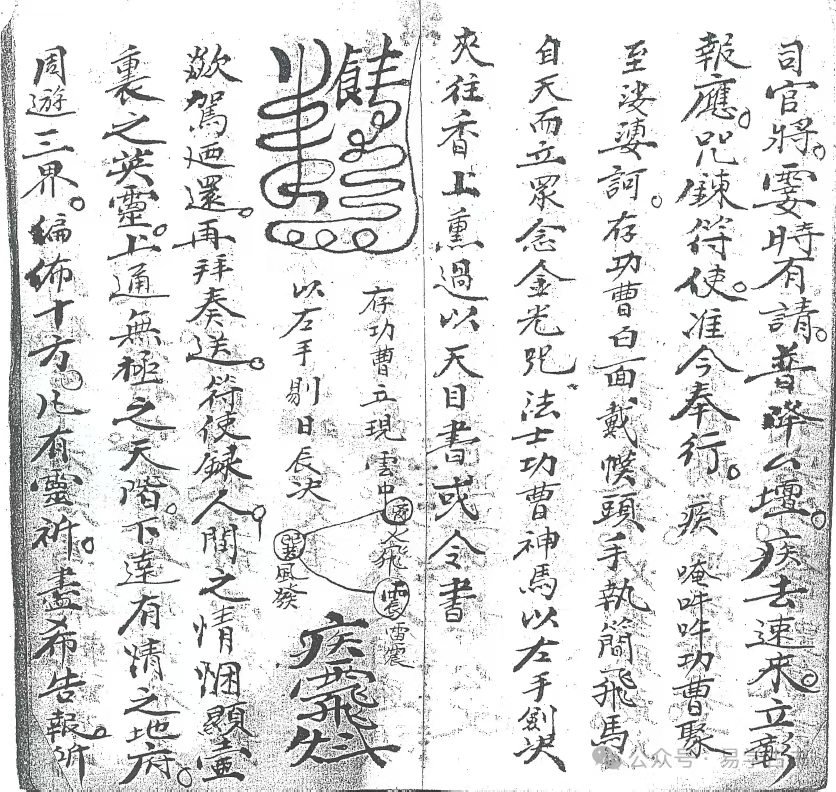 司官將。霎時有請。普降公壇。疾去速來。立彰
報應。咒鍊符使。准令奉行。疾 唵吽吽功曹聚
至娑婆訶。存功曹白面戴幞頭手執簡飛馬
自天而立眾念金光咒法士功曹神馬以左手劍决
夾往香上薰過以天目書或令書
存功曹立現雲中
以左手剔日辰决
火飛
震雷震
巽風發
疾
歘駕迺還。再拜奏送。符使録人間之情悃顯壺
裏之英靈。上通無極之天階。下達有情之地府。
周遊三界。徧佈十方。凡有靈祈。盡希告報。所
公众号·易学